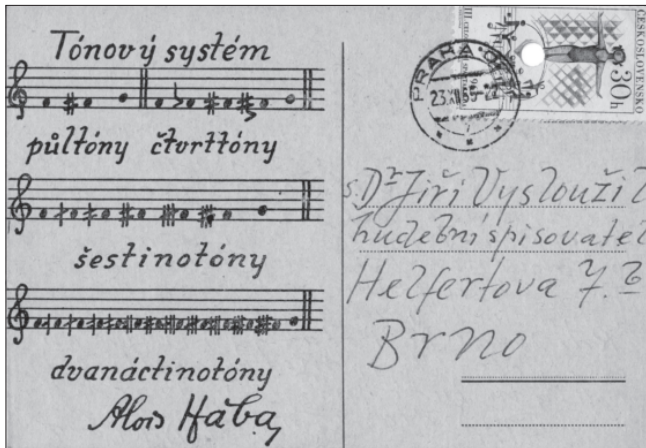 Tónový systém
půltóny čtvrttóny
šestinotóny
dvanáctinotóny
Alois Hába
ČESKOSLOVENSKO
30h
PRAHA
s. Dr Jiří Vysloužil
hudební spisovatel
Helfertova 7.
Brno